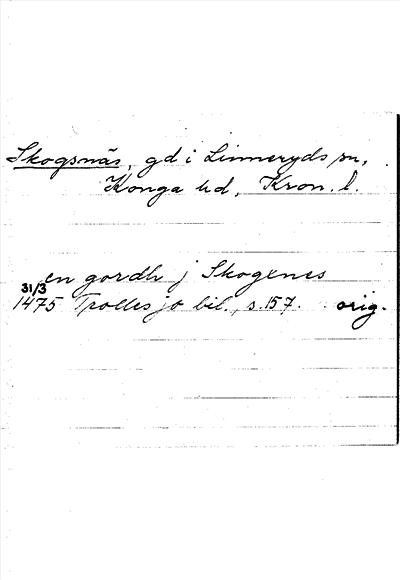 Skogsnäs, gd i Linneryds sn,
Konga hd, Kron. l.
en gordh j Skogenes
31/3
1475 Trolles jo bil., s. 157. orig.